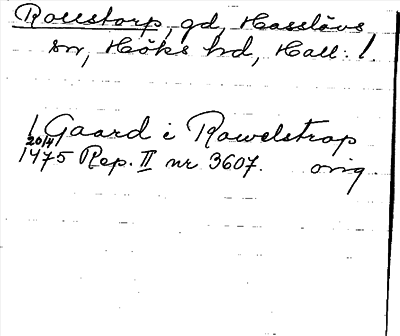 Rollstorp, gd, Hasslövs
sn, Höks hd, Hall. l.
1 Gaard i Rawelstrap
20/4
1475 Rep. II nr 3607. orig